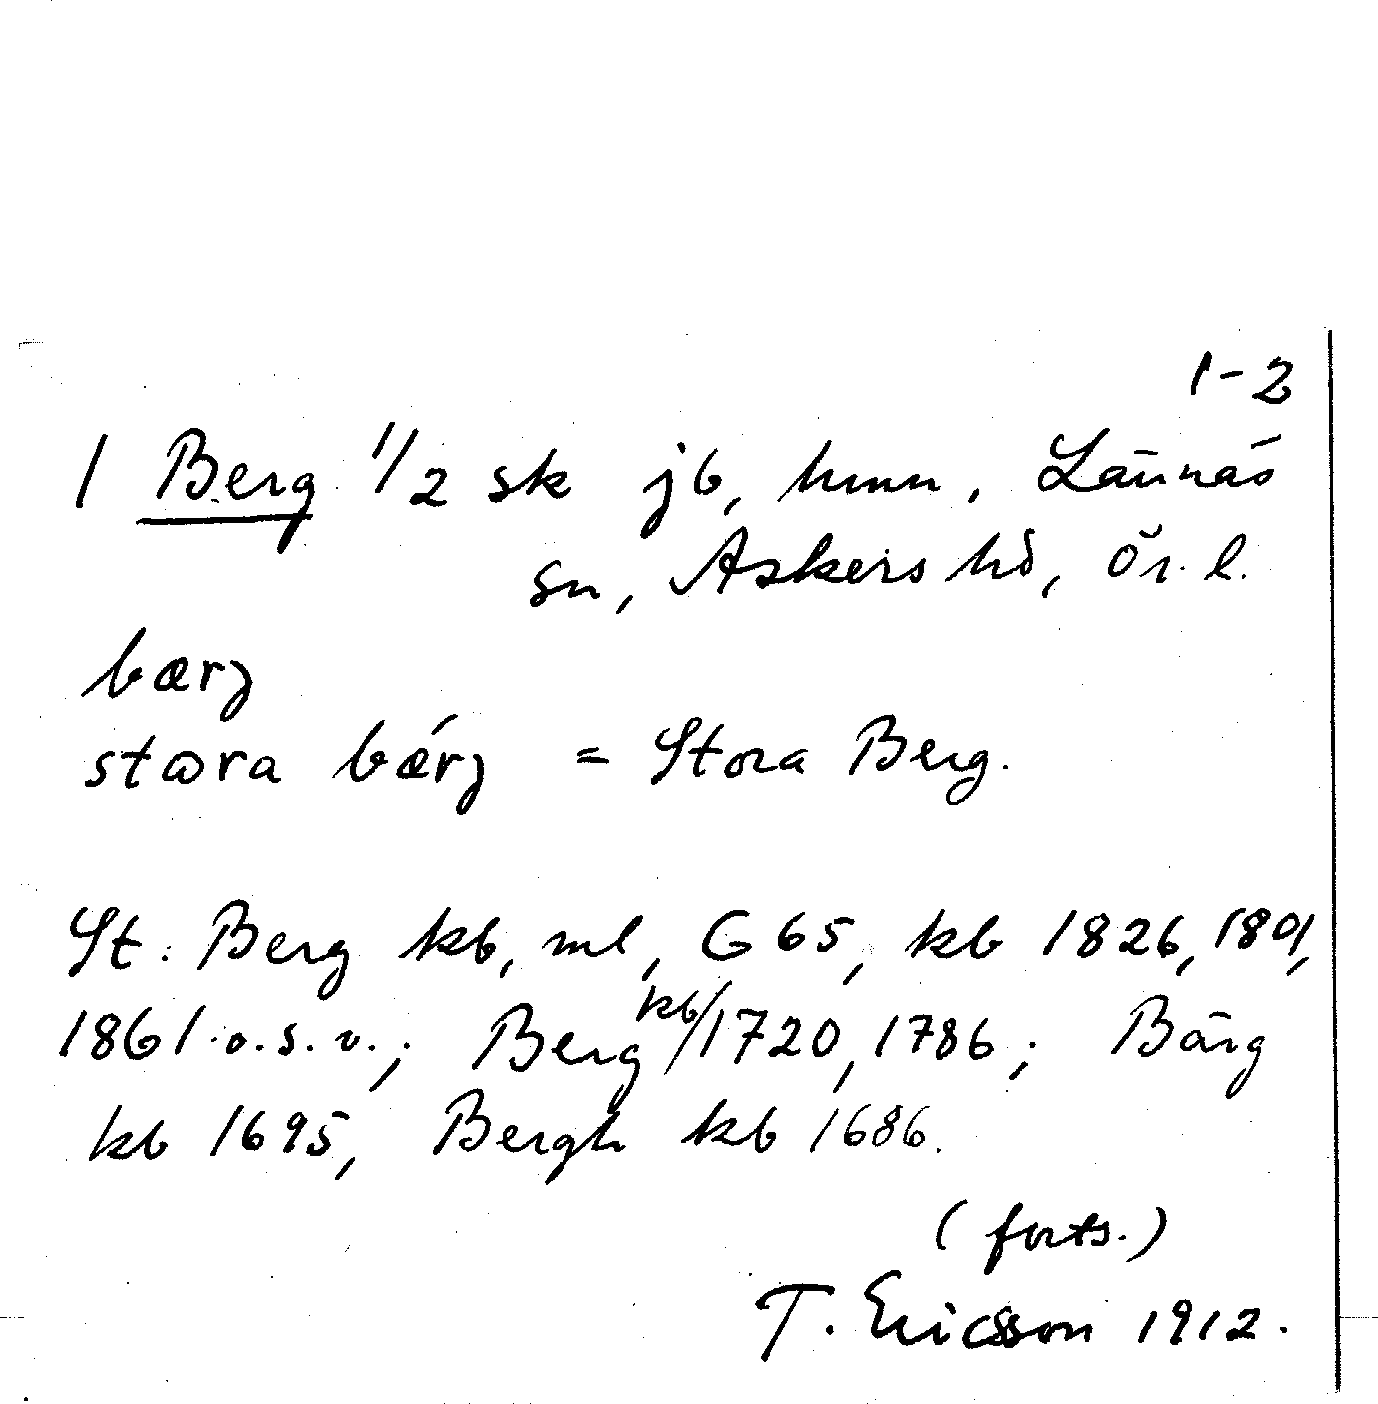 1-2
1 Berg 1/2 sk jb, hmn, Lännäs
sn, Askers hd, Ör. l.
bærj
stɷra bǽrj = Stora Berg.
St. Berg kb, ml, G65, kb 1826, 1801,
1861 o.s.v.; Berg kb/1720, 1786; Bärg
kb 1695, Bergh kb 1686.
(forts.)
T. Ericsson 1912.